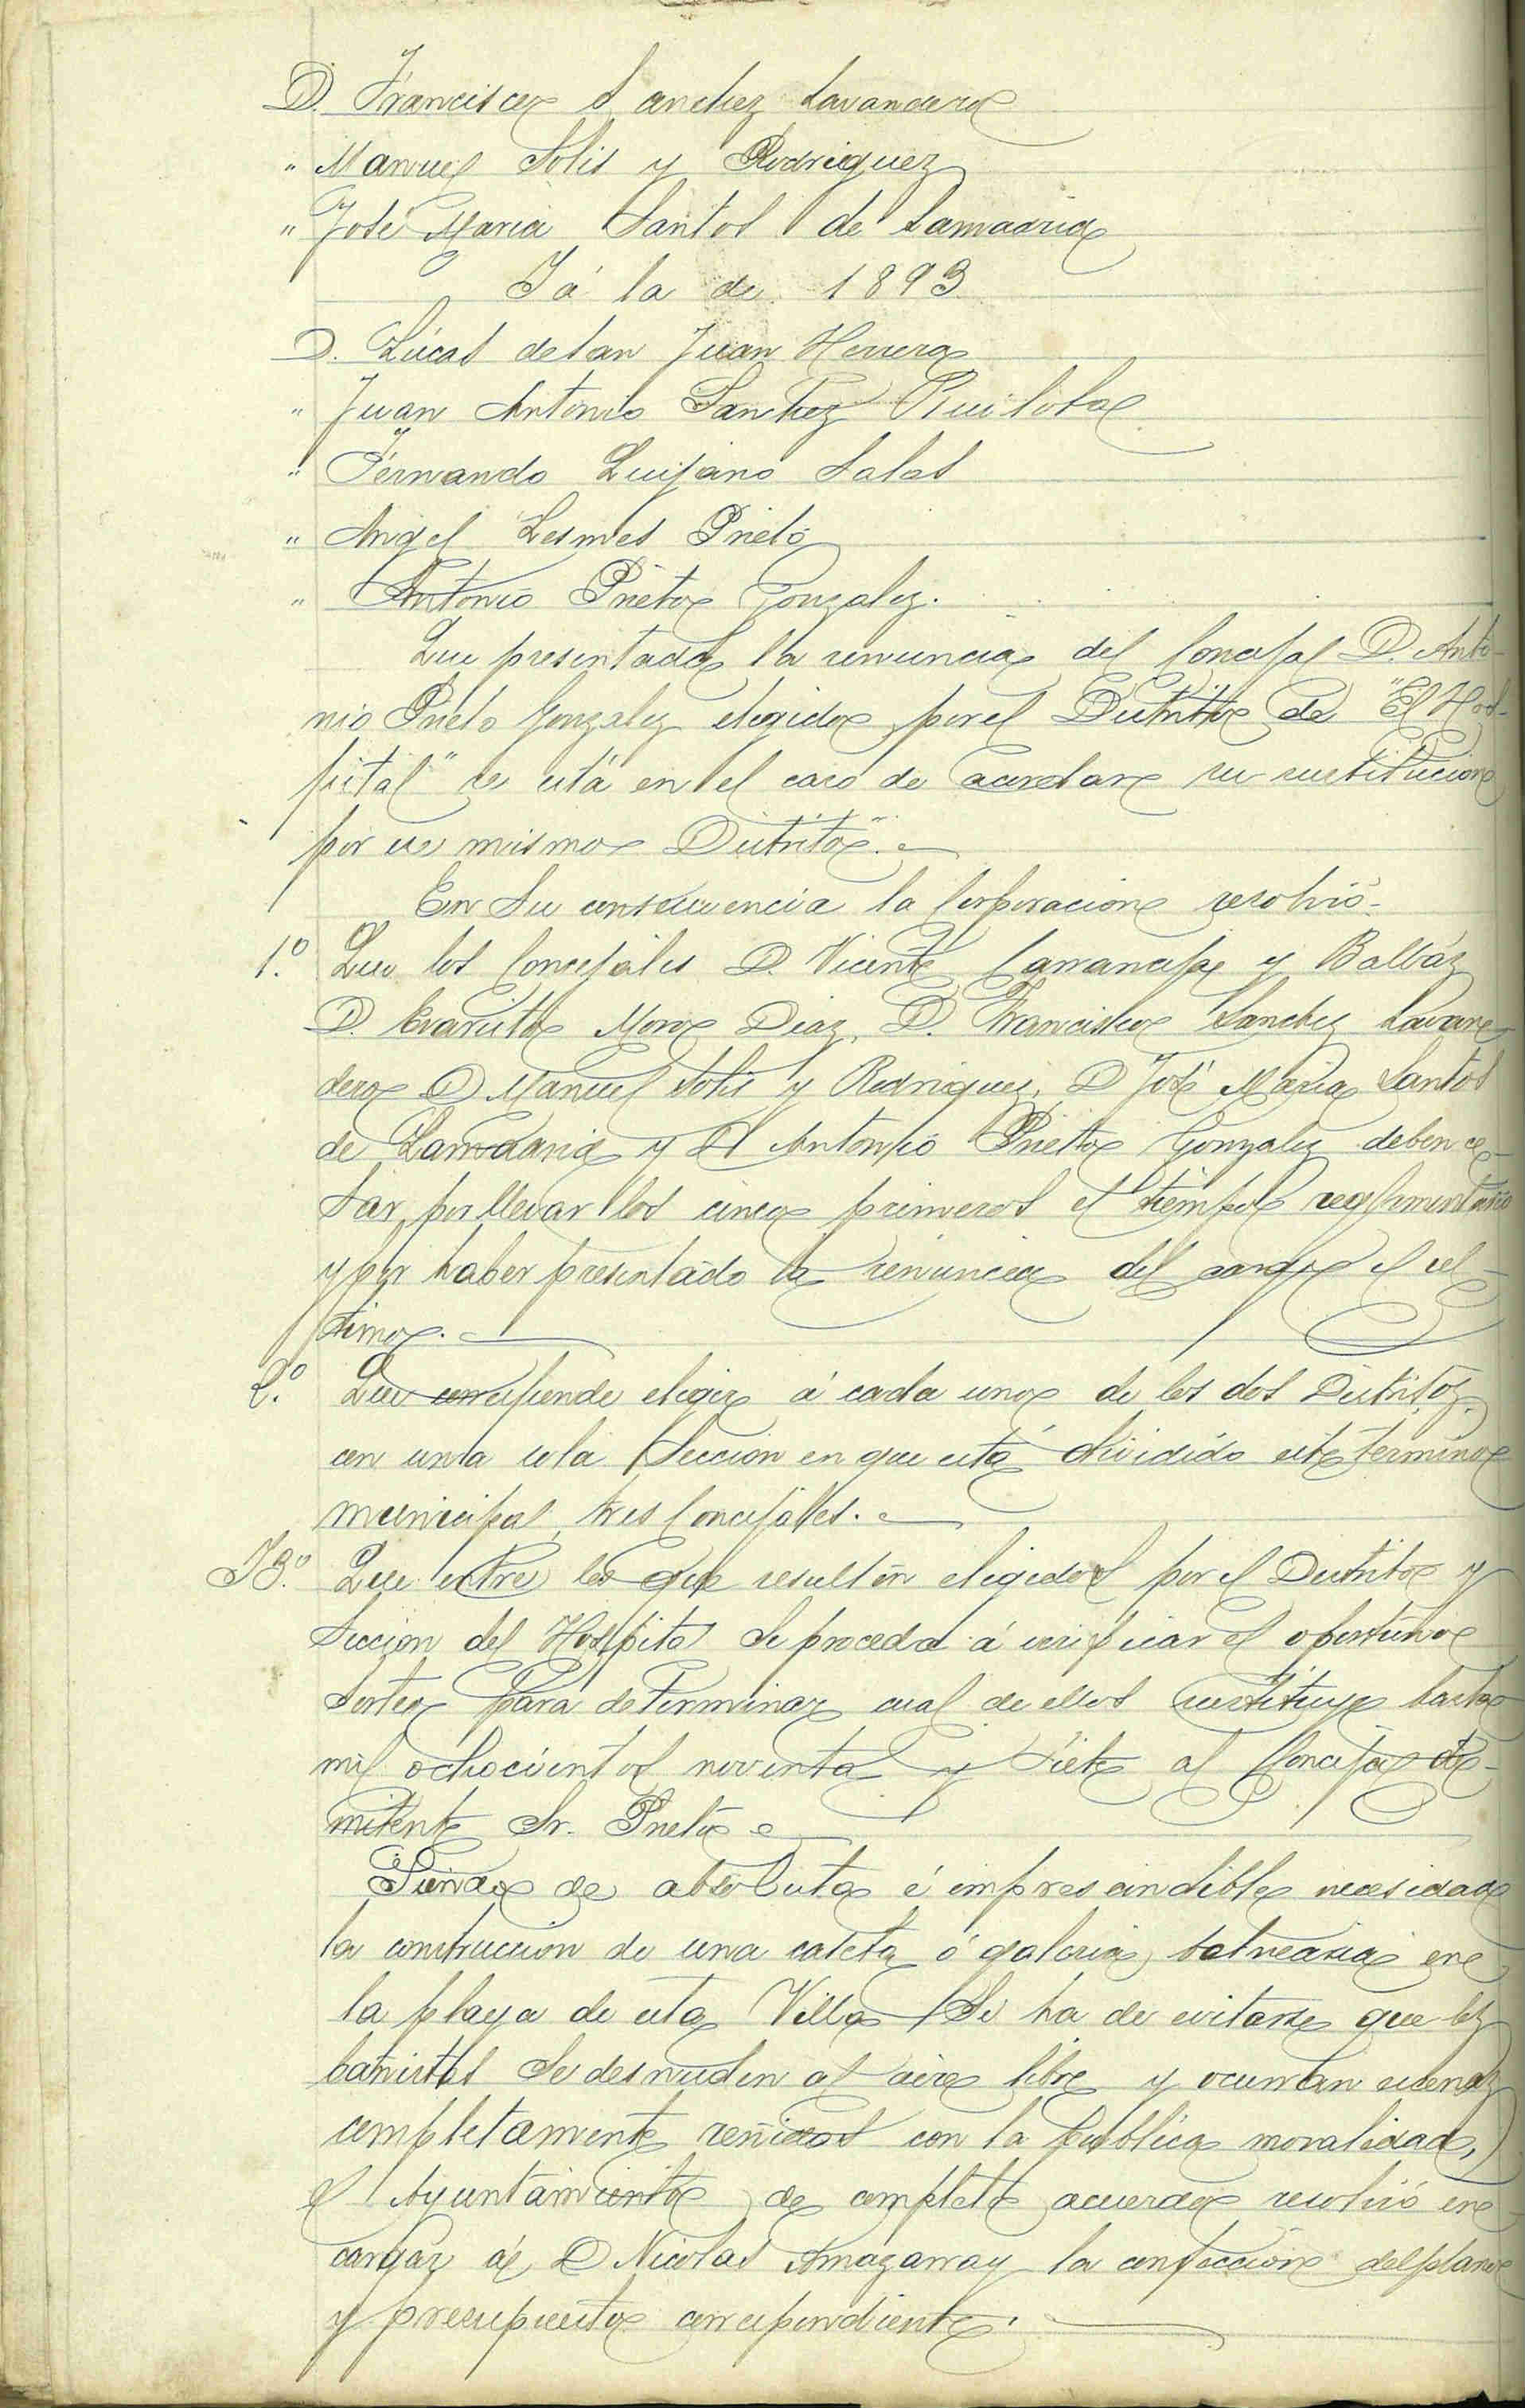 D. Francisco Sanchez Lavandero
" Manuel Solis y Rodriguez
" José Maria Santos de Lamadrid
Y á la de 1893
D. Lúcas de San Juan Herrera
" Juan Antonio Sanchez Ruiloba
" Fernando Quijano Salas
" Angel Lesmes Prieto
" Antonio Prieto Gonzalez.
Que presentada la renuncia del Concejal D. Anto-
nio Prieto Gonzalez elegido por el Distrito de "El Hos-
pital" se está en el caso de acordar su sustitucion
por ese mismo Distrito".
En su consecuencia la Corporacion resolvió-
1.º Que los Concejales D. Vicente Carranceja y Balbás
D. Evaristo Moro Diaz, D. Francisco Sanchez Lavan-
dero D. Manuel Solis y Rodriguez, D José Maria Santos
de Lamadrid y D Antonio Prieto Gonzalez deben ce-
sar, por llevar los cinco primeros el tiempo reglamentario
y por haber presentado la renuncia del cargo el úl-
timo.
2.º Que corresponde elegir á cada uno de los dos Distritos
con una sola Seccion en que está dividido este término
municipal, tres Concejales.
Y 3.º Que entre los que resulten elegidos por el Distrito y
Seccion del Hospital se proceda á verificar el oportuno
sorteo para determinar cual de ellos sustituye hasta
mil ochocientos noventa y siete al Concejal di-
mitente Sr. Prieto
Siendo de absoluta é imprescindible necesidad
la construccion de una caseta ó galeria balnearia en
la playa de esta Villa Si ha de evitarse que los
bañistas se desnuden al aire libre y ocurran escenas
completamente reñidas con la pública moralidad,
el Ayuntamiento de completo acuerdo resolvió en
cargar á D Nicolas Amazarray la confeccion del plano
y presupuesto correspondiente.